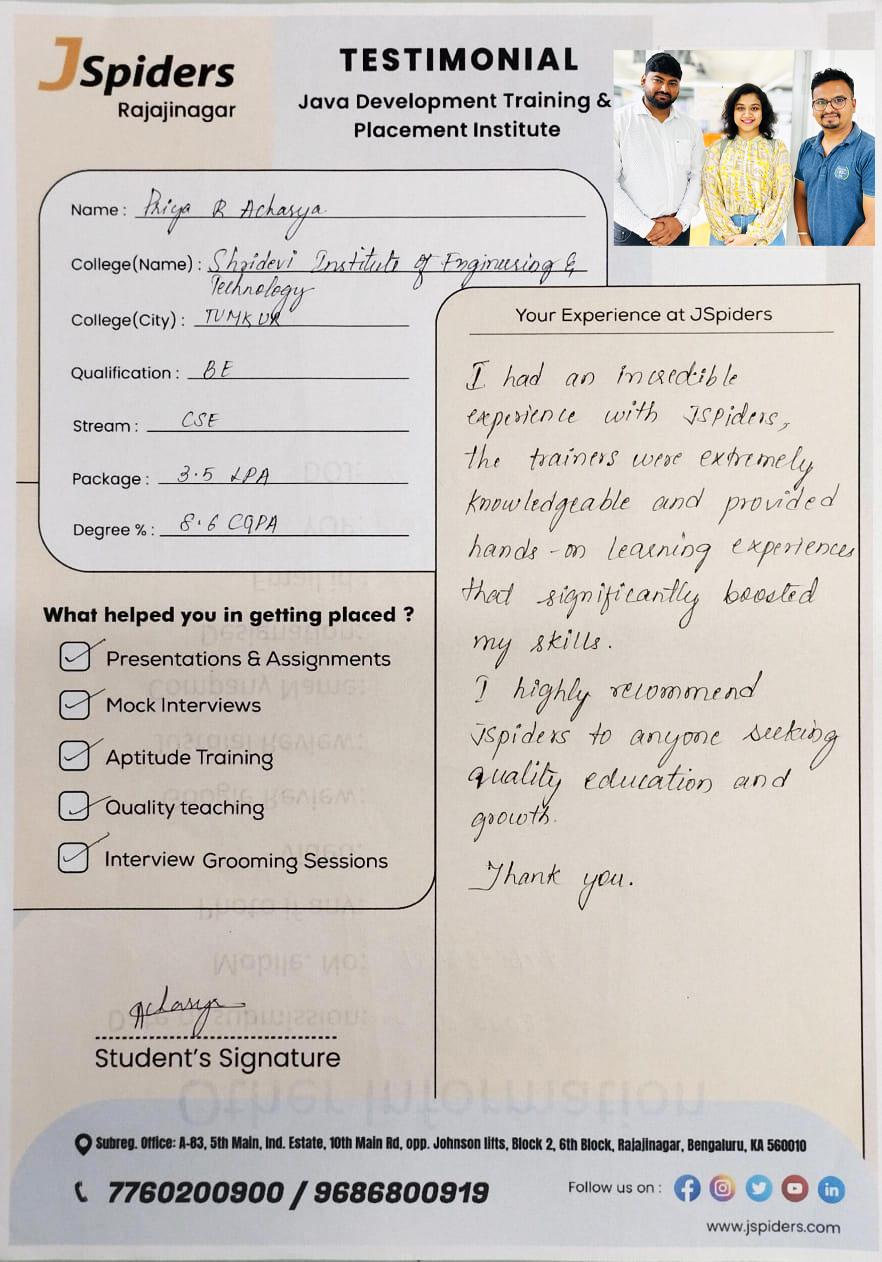 JSpiders
Rajajinagar
TESTIMONIAL
Java Development Training &
Placement Institute
Name : Priya R Acharya
College(Name) : Shridevi Institute of Engineering &
Technology
College(City) : TUMKUR
Qualification : BE
Stream : CSE
Package : 3.5 LPA
Degree % : 8.6 CGPA
What helped you in getting placed ?
Presentations & Assignments
Mock Interviews
Aptitude Training
Quality teaching
Interview Grooming Sessions
Acharya
Student's Signature
Your Experience at JSpiders
I had an incredible
experience with JSpiders,
the trainers were extremely
knowledgeable and provided
hands-on learning experiences
that significantly boosted
my skills.
I highly recommend
JSpiders to anyone seeking
quality education and
growth.
Thank you.
Other Information
Date of submission:
Mobile. No:
Photo if any:
Video:
Google Review:
Justdial Review:
Company Name:
Designation:
Email id :
YOP:
DOJ:
Subreg. Office: A-83, 5th Main, Ind. Estate, 10th Main Rd, opp. Johnson lifts, Block 2, 6th Block, Rajajinagar, Bengaluru, KA 560010
7760200900 / 9686800919
Follow us on :
www.jspiders.com